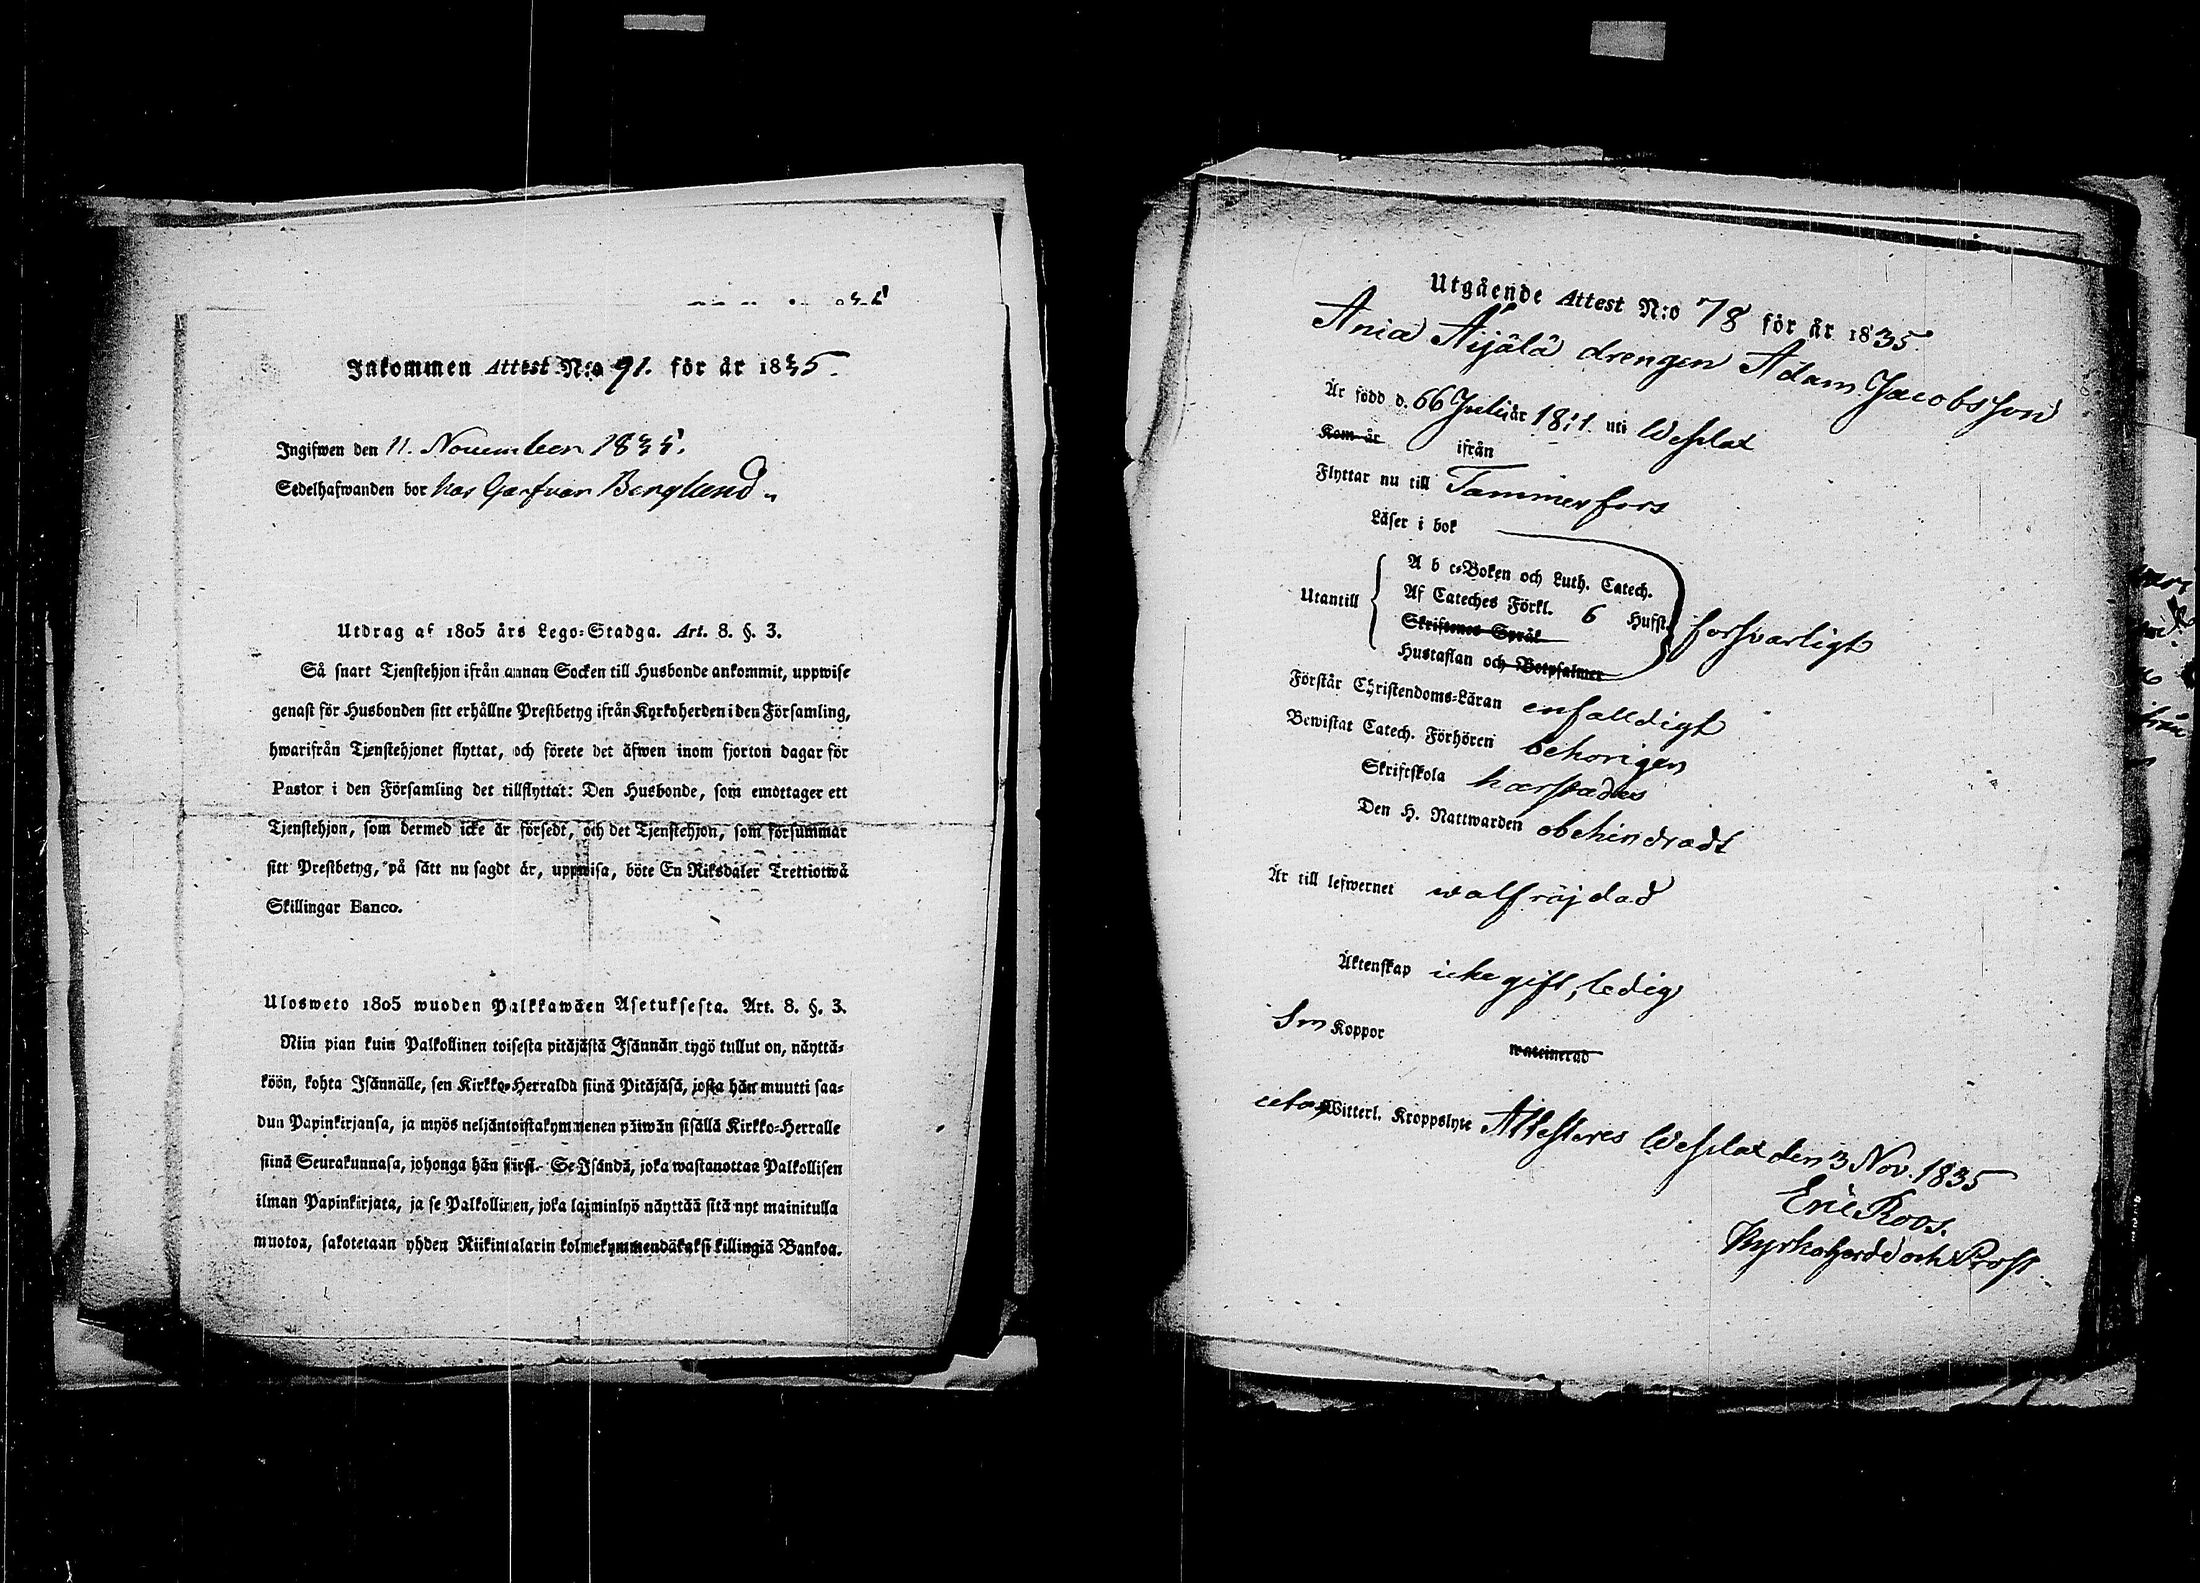 Inkommen Attest N:o 91. för år 1835.
Ingifwen den 11. November 1835.
Sedelhafwanden bor hos Garfvar Berglund.
Utdrag af 1805 års Lego-Stadga. Art. 8. §. 3.
Så snart Tjenstehjon ifrån annan Socken till Husbonde ankommit, uppwise
genast för Husbonden sitt erhållne Prestbetyg ifrån Kyrkoherden i den Församling,
hwarifrån Tjenstehjonet flyttat, och förete det äfwen inom fjorton dagar för
Pastor i den Församling det tillflyttat: Den Husbonde, som emottager ett
Tjenstehjon, som dermed icke är försedt, och det Tjenstehjon, som försummar
sitt Prestbetyg, på sätt nu sagdt är, uppwisa, böte En Riksdaler Trettiotwå
Skillingar Banco.
Ulosweto 1805 wuoden Palkkawäen Asetuksesta. Art. 8. §. 3.
Niin pian kuin Palkollinen toisesta pitäjästä Isännän tygö tullut on, näyttä-
köön, kohta Isännälle, sen Kirkko-Herralda siinä Pitäjäsä, josta hän muutti saa-
dun Papinkirjansa, ja myös neljäntoistakymmenen päiwän sisällä Kirkko-Herralle
siinä Seurakunnasa, johonga hän siirsi. Se Isändä, joka wastanottaa Palkollisen
ilman Papinkirjata, ja se Palkollinen, joka laiminlyö näyttää sitä nyt mainitulla
muotoa, sakotetaan yhden Riikintalarin kolmekymmendäkaksi killingiä Bankoa.
Utgående Attest N:o 78 för år 1835
Ania Äijälä drengen Adam Jacobsson
Är född d. 66 Julii år 1811 uti Wesilax
Kom år ifrån
Flyttar nu till Tammerfors
Läser i bok
A b c-Boken och Luth. Catech.
Utantill Af Cateches Förkl. 6 Hufst.
Skriftenes Språk försvarligt
Hustaflan och Botpsalmer
Förstår Christendoms-Läran enfalldigt
Bewistat Catech. Förhören behörigen
Skriftskola härstädes
Den H. Nattwarden obehindradt
Är till lefwernet wälfräjdad
Äktenskap icke gift, ledig
Sm Koppor waccinerad
utan Witterl. Kroppslyte Attesteres Wesilax den 3 Nov. 1835
Eric Roos.
Kyrkoherde och Prost.